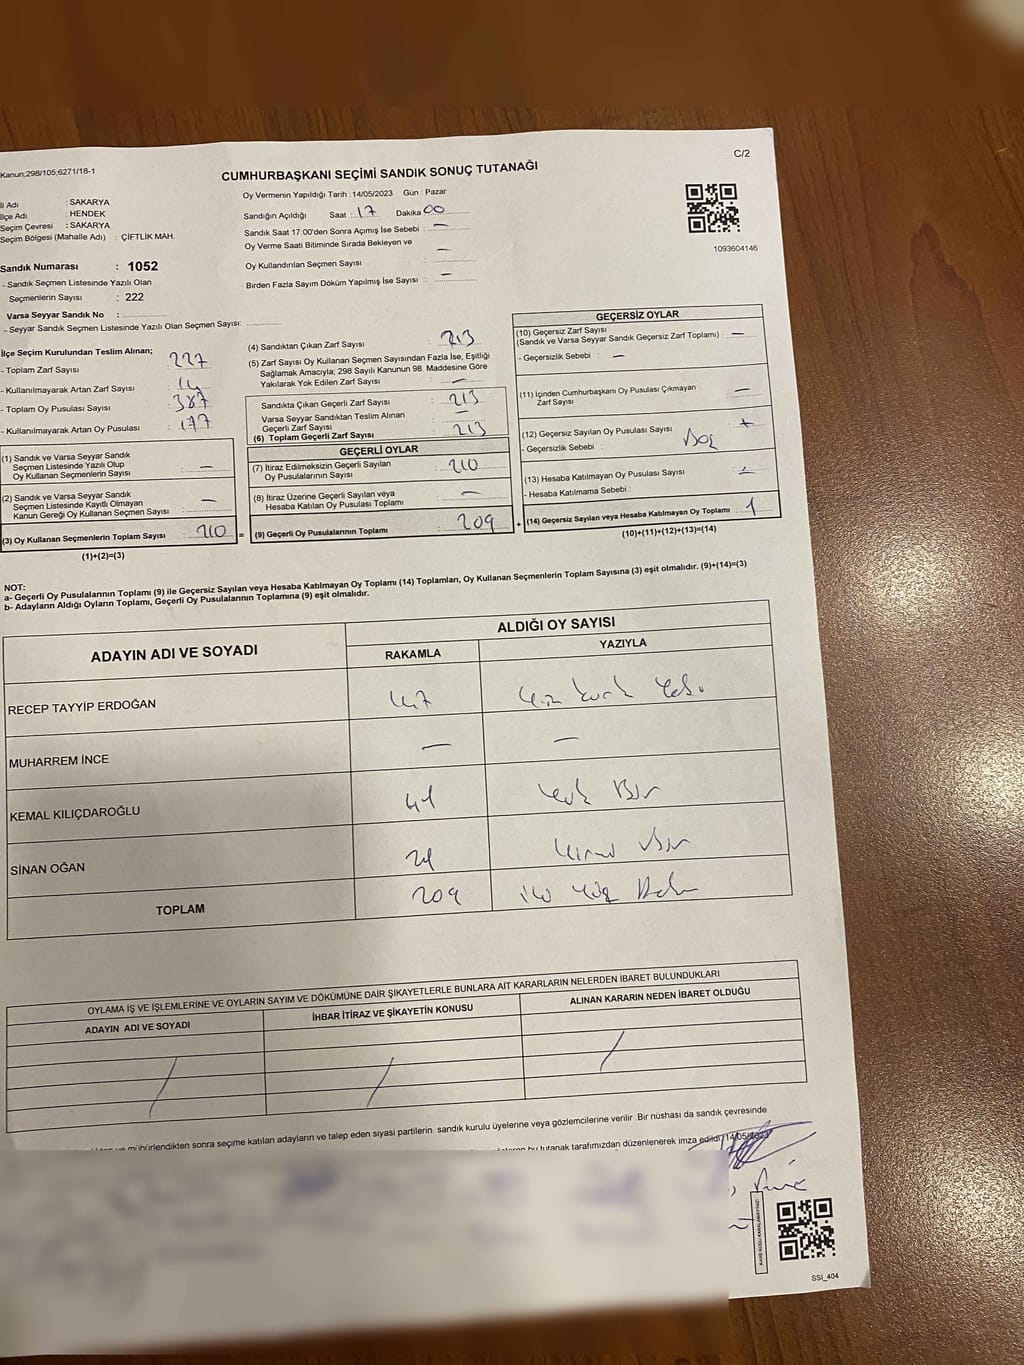 C/2
Kanun;298/105;6271/18-1
CUMHURBAŞKANI SEÇİMİ SANDIK SONUÇ TUTANAĞI
İl Adı : SAKARYA
İlçe Adı : HENDEK
Seçim Çevresi : SAKARYA
Seçim Bölgesi (Mahalle Adı) : ÇİFTLİK MAH.
Sandık Numarası : 1052
- Sandık Seçmen Listesinde Yazılı Olan
Seçmenlerin Sayısı : 222
Varsa Seyyar Sandık No :
- Seyyar Sandık Seçmen Listesinde Yazılı Olan Seçmen Sayısı:
Oy Vermenin Yapıldığı Tarih :14/05/2023 Gün : Pazar
Sandığın Açıldığı Saat : 17 Dakika 00
Sandık Saat 17:00'den Sonra Açımış İse Sebebi : —
Oy Verme Saati Bitiminde Sırada Bekleyen ve
Oy Kullandırılan Seçmen Sayısı : —
Birden Fazla Sayım Döküm Yapılmış İse Sayısı : —
1093604146
İlçe Seçim Kurulundan Teslim Alınan;
- Toplam Zarf Sayısı : 227
- Kullanılmayarak Artan Zarf Sayısı : 14
- Toplam Oy Pusulası Sayısı : 387
- Kullanılmayarak Artan Oy Pusulası : 177
(1) Sandık ve Varsa Seyyar Sandık
Seçmen Listesinde Yazılı Olup
Oy Kullanan Seçmenlerin Sayısı : —
(2) Sandık ve Varsa Seyyar Sandık
Seçmen Listesinde Kayıtlı Olmayan
Kanun Gereği Oy Kullanan Seçmen Sayısı : —
(3) Oy Kullanan Seçmenlerin Toplam Sayısı : 210 =
(1)+(2)=(3)
(4) Sandıktan Çıkan Zarf Sayısı : 213
(5) Zarf Sayısı Oy Kullanan Seçmen Sayısından Fazla İse, Eşitliği
Sağlamak Amacıyla; 298 Sayılı Kanunun 98. Maddesine Göre
Yakılarak Yok Edilen Zarf Sayısı : —
Sandıkta Çıkan Geçerli Zarf Sayısı : 213
Varsa Seyyar Sandıktan Teslim Alınan
Geçerli Zarf Sayısı : —
(6) Toplam Geçerli Zarf Sayısı : 213
GEÇERLİ OYLAR
(7) İtiraz Edilmeksizin Geçerli Sayılan
Oy Pusulalarının Sayısı : 210
(8) İtiraz Üzerine Geçerli Sayılan veya
Hesaba Katılan Oy Pusulası Toplamı : —
(9) Geçerli Oy Pusulalarının Toplamı : 209 +
GEÇERSİZ OYLAR
(10) Geçersiz Zarf Sayısı
(Sandık ve Varsa Seyyar Sandık Geçersiz Zarf Toplamı) : —
- Geçersizlik Sebebi : —
(11) İçinden Cumhurbaşkanı Oy Pusulası Çıkmayan
Zarf Sayısı : —
(12) Geçersiz Sayılan Oy Pusulası Sayısı :
- Geçersizlik Sebebi : Boş
(13) Hesaba Katılmayan Oy Pusulası Sayısı :
- Hesaba Katılmama Sebebi :
(14) Geçersiz Sayılan veya Hesaba Katılmayan Oy Toplamı : 1
(10)+(11)+(12)+(13)=(14)
NOT:
a- Geçerli Oy Pusulalarının Toplamı (9) ile Geçersiz Sayılan veya Hesaba Katılmayan Oy Toplamı (14) Toplamları, Oy Kullanan Seçmenlerin Toplam Sayısına (3) eşit olmalıdır. (9)+(14)=(3)
b- Adayların Aldığı Oyların Toplamı, Geçerli Oy Pusulalarının Toplamına (9) eşit olmalıdır.
ADAYIN ADI VE SOYADI ALDIĞI OY SAYISI
RAKAMLA YAZIYLA
RECEP TAYYİP ERDOĞAN
MUHARREM İNCE — —
KEMAL KILIÇDAROĞLU 41 Kırk Bir
SİNAN OĞAN 21 Yirmi Bir
TOPLAM 209 iki Yüz Dokuz
OYLAMA İŞ VE İŞLEMLERİNE VE OYLARIN SAYIM VE DÖKÜMÜNE DAİR ŞİKAYETLERLE BUNLARA AİT KARARLARIN NELERDEN İBARET BULUNDUKLARI
ADAYIN ADI VE SOYADI İHBAR İTİRAZ VE ŞİKAYETİN KONUSU ALINAN KARARIN NEDEN İBARET OLDUĞU
mühürlendikten sonra seçime katılan adayların ve talep eden siyasi partilerin sandık kurulu üyelerine veya gözlemcilerine verilir .Bir nüshası da sandık çevresinde
bu tutanak tarafımızdan düzenlenerek imza edildi 14/05/2023
SSİ_404